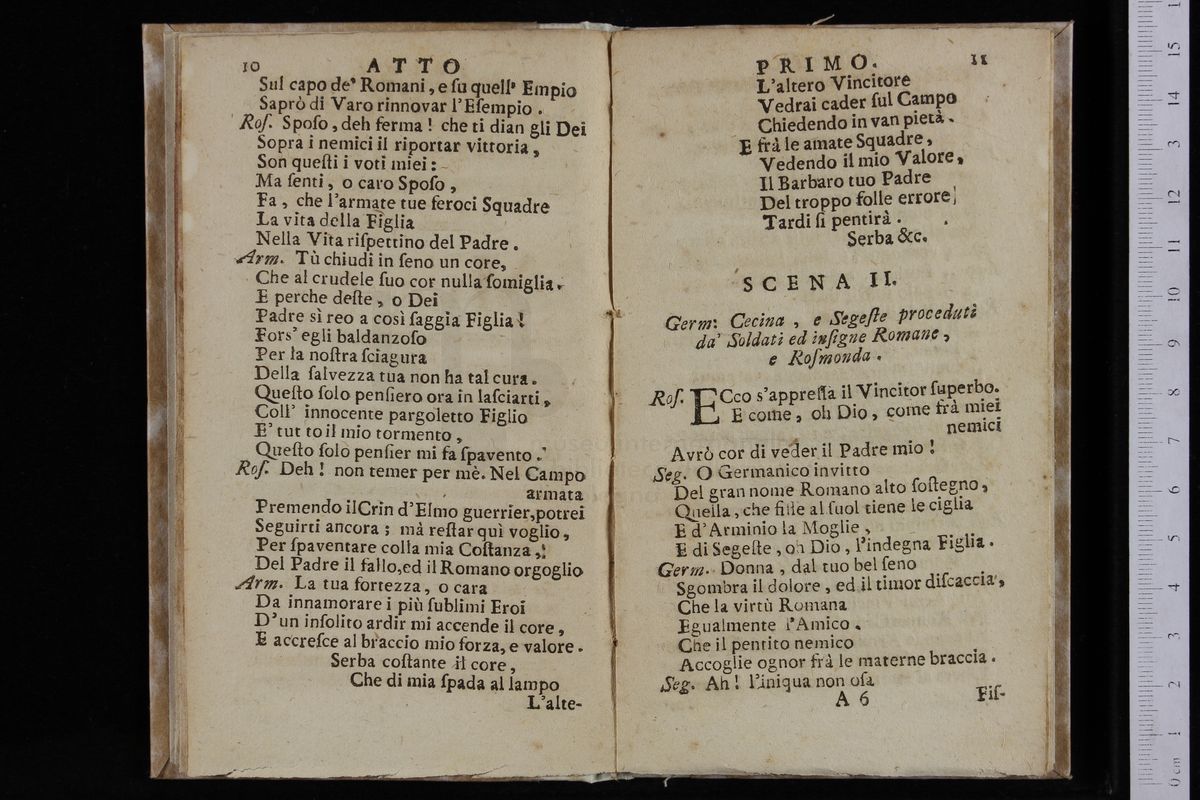 10 ATTO
Sul capo de' Romani, e ſu quell' Empio
Saprò di Varo rinnovar l'Eſempio.
Roſ. Spoſo, deh ferma! che ti dian gli Dei
Sopra i nemici il riportar vittoria,
Son queſti i voti miei:
Ma ſenti, o caro Spoſo,
Fa, che l'armate tue feroci Squadre
La vita della Figlia
Nella Vita riſpettino del Padre.
Arm. Tù chiudi in ſeno un core,
Che al crudele ſuo cor nulla ſomiglia.
E perche deſte, o Dei
Padre sì reo a così ſaggia Figlia!
Fors' egli baldanzoſo
Per la noſtra ſciagura
Della ſalvezza tua non ha tal cura.
Queſto ſolo penſiero ora in laſciarti,
Coll' innocente pargoletto Figlio
E' tut to il mio tormento,
Queſto ſolo penſier mi fa ſpavento.
Roſ. Deh! non temer per mè. Nel Campo
armata
Premendo ilCrin d'Elmo guerrier,potrei
Seguirti ancora; mà reſtar quì voglio,
Per ſpaventare colla mia Coſtanza,
Del Padre il fallo,ed il Romano orgoglio
Arm. La tua fortezza, o cara
Da innamorare i più ſublimi Eroi
D'un inſolito ardir mi accende il core,
E accreſce al braccio mio forza, e valore.
Serba coſtante il core,
Che di mia ſpada al lampo
L'alte-
PRIMO. 11
L'altero Vincitore
Vedrai cader ſul Campo
Chiedendo in van pietà.
E frà le amate Squadre,
Vedendo il mio Valore,
Il Barbaro tuo Padre
Del troppo folle errore,
Tardi ſi pentirà.
Serba &c.
SCENA II.
Germ: Cecina, e Segeſte proceduti
da' Soldati ed inſigne Romane,
e Roſmonda.
Roſ. ECco s'appreſſa il Vincitor ſuperbo.
E come, oh Dio, come frà miei
nemici
Avrò cor di veder il Padre mio!
Seg. O Germanico invitto
Del gran nome Romano alto ſoſtegno,
Quella, che fiſſe al ſuol tiene le ciglia
E d'Arminio la Moglie,
E di Segeſte, oh Dio, l'indegna Figlia.
Germ. Donna, dal tuo bel ſeno
Sgombra il dolore, ed il timor diſcaccia,
Che la virtù Romana
Egualmente l'Amico.
Che il pentito nemico
Accoglie ognor frà le materne braccia.
Seg. Ah! l'iniqua non oſa
A 6 Fiſ-